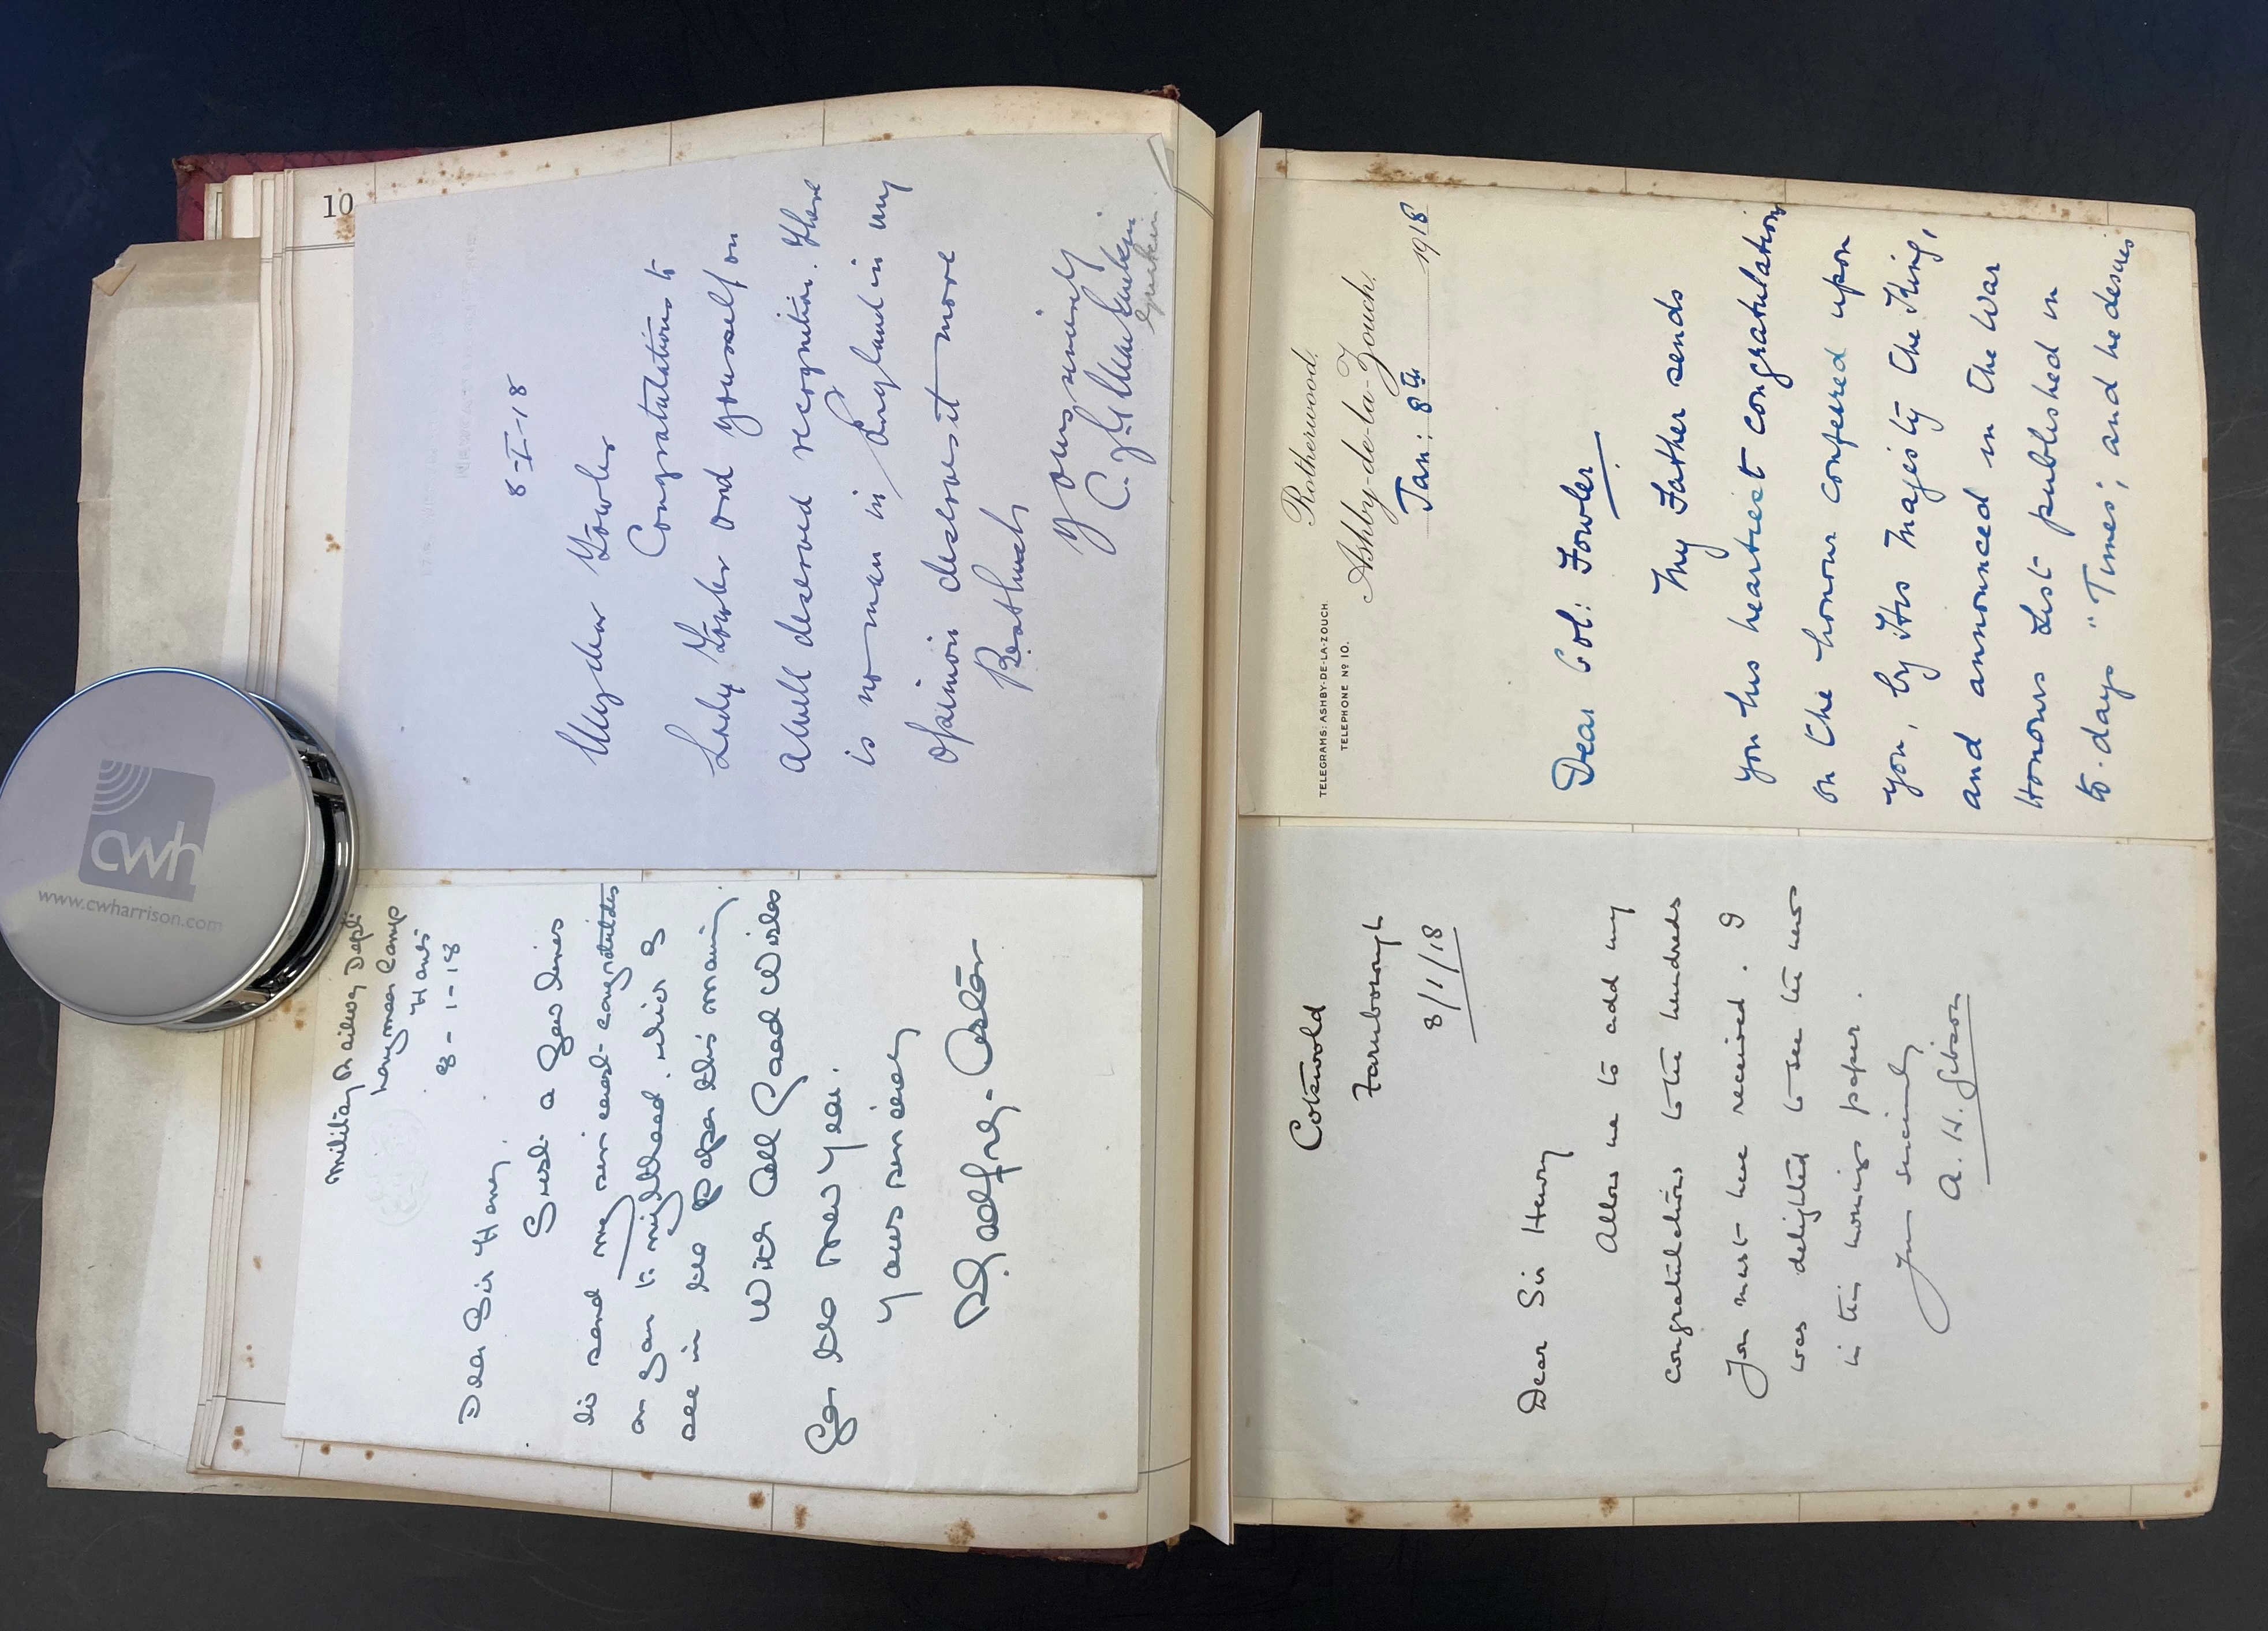 10
Military Railway Dept
Longmoor Camp
Hants
8-1-18
Dear Sir Henry,
Just a few lines
to send my sincerest congratulations
on your knighthood, which I
see in the Paper this morning.
With all Good Wishes
for the New Year.
Yours sincerely
8-I-18
My dear Fowler
Congratulations to
Lady Fowler and yourself on
a well deserved recognition. There
is no man in England in my
opinion deserves it more
Best luck
Yours sincerely
cwh
www.cwharrison.com
Cotswold
Farnborough
8/1/18
Dear Sir Henry
Allow me to add my
congratulations to the hundreds
you must have received. I
was delighted to see the news
in this mornings paper.
Yours sincerely
A. H. Gibson
Rotherwood,
Ashby-de-la-Zouch.
TELEGRAMS: ASHBY-DE-LA-ZOUCH.
TELEPHONE Nº 10.
Jan: 8th 1918
Dear Col: Fowler
My Father sends
you his heartiest congratulations
on the honour conferred upon
you, by His Majesty the King,
and announced in the War
Honours List published in
to-days "Times", and he desires